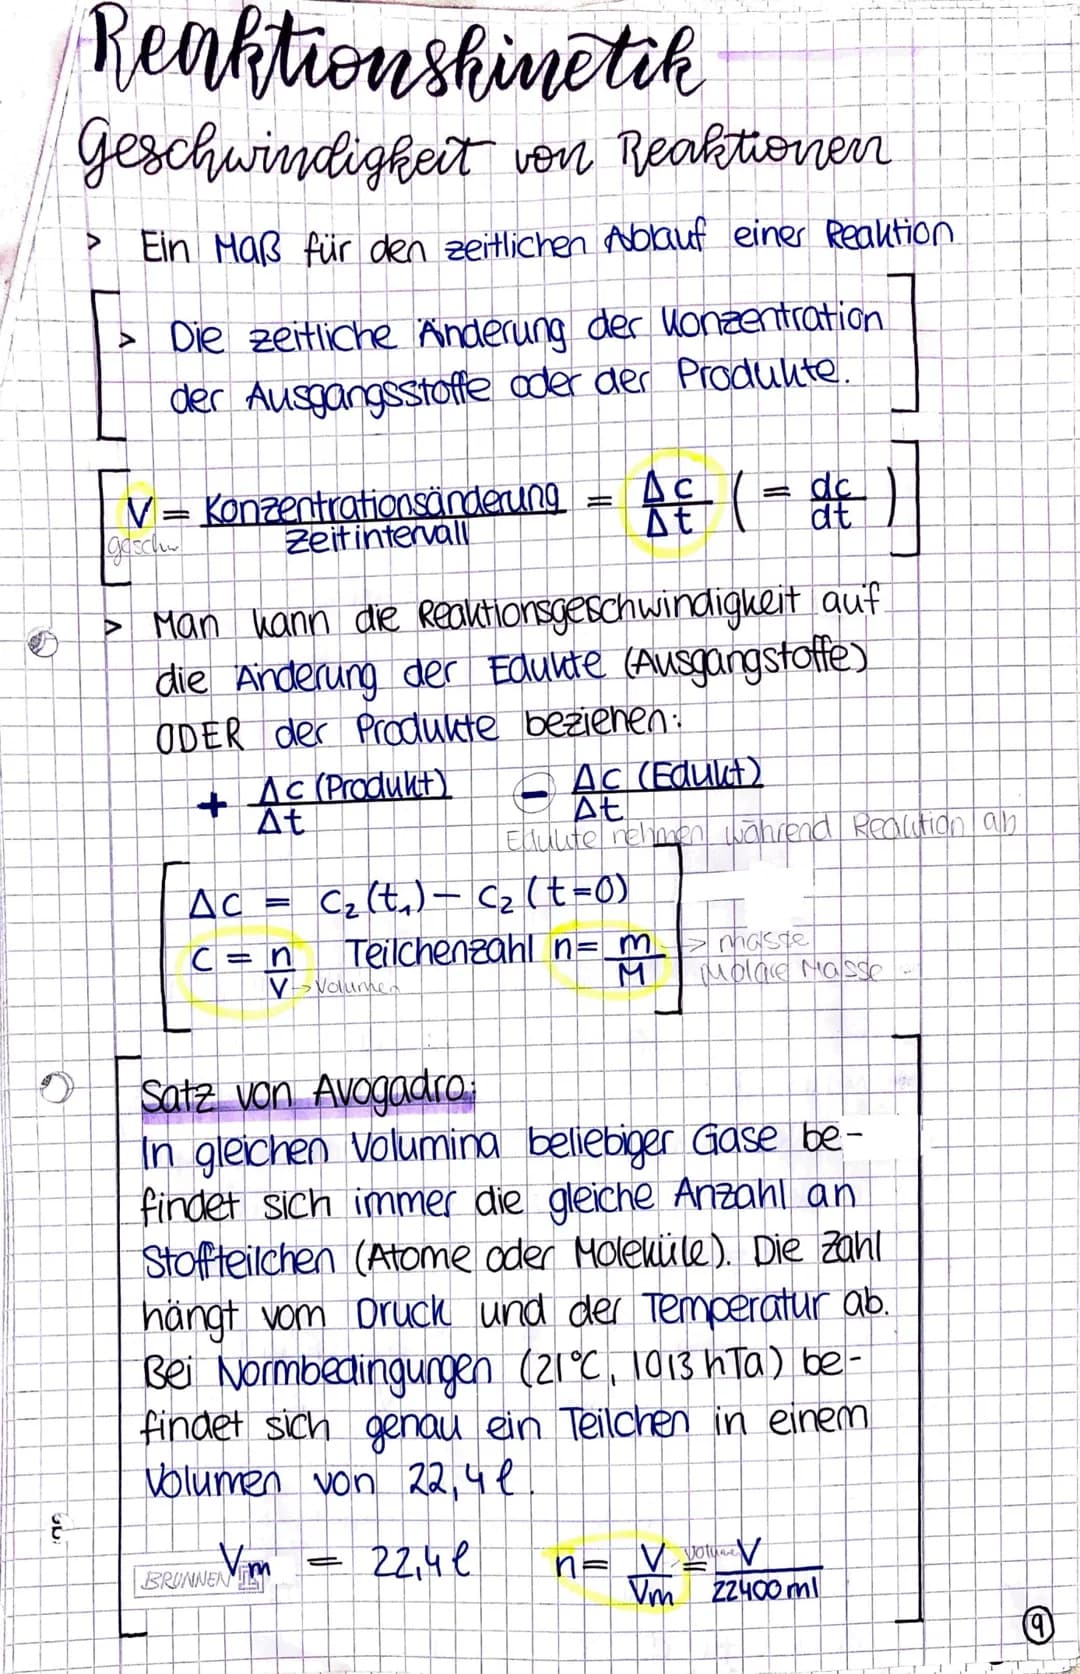 Reaktionskinetik
Geschwindigkeit von Reaktionen
> Ein Maß für den zeitlichen Ablauf einer Reaktion
> Die zeitliche Änderung der Konzentration
der Ausgangsstoffe oder der Produkte.
V = Konzentrationsänderung / Zeitintervall = Δc / Δt ( = dc / dt )
geschw
> Man kann die Reaktionsgeschwindigkeit auf
die Änderung der Edukte (Ausgangstoffe)
ODER der Produkte beziehen:
+ Δc (Produkt) / Δt - Δc (Edukt) / Δt
Edukte nehmen während Reaktion ab
Δc = c₂(t₁) - c₂(t=0)
c = n / V Teilchenzahl n = m / M > masse
→ Volumen Molare Masse
Satz von Avogadro:
In gleichen Volumina beliebiger Gase be-
findet sich immer die gleiche Anzahl an
Stoffteilchen (Atome oder Moleküle). Die Zahl
hängt vom Druck und der Temperatur ab.
Bei Normbedingungen (21°C, 1013 hTa) be-
findet sich genau ein Teilchen in einem
Volumen von 22,4l.
Vm = 22,4l n = V / Vm = V / 22400 ml
Volume
BRUNNEN
9